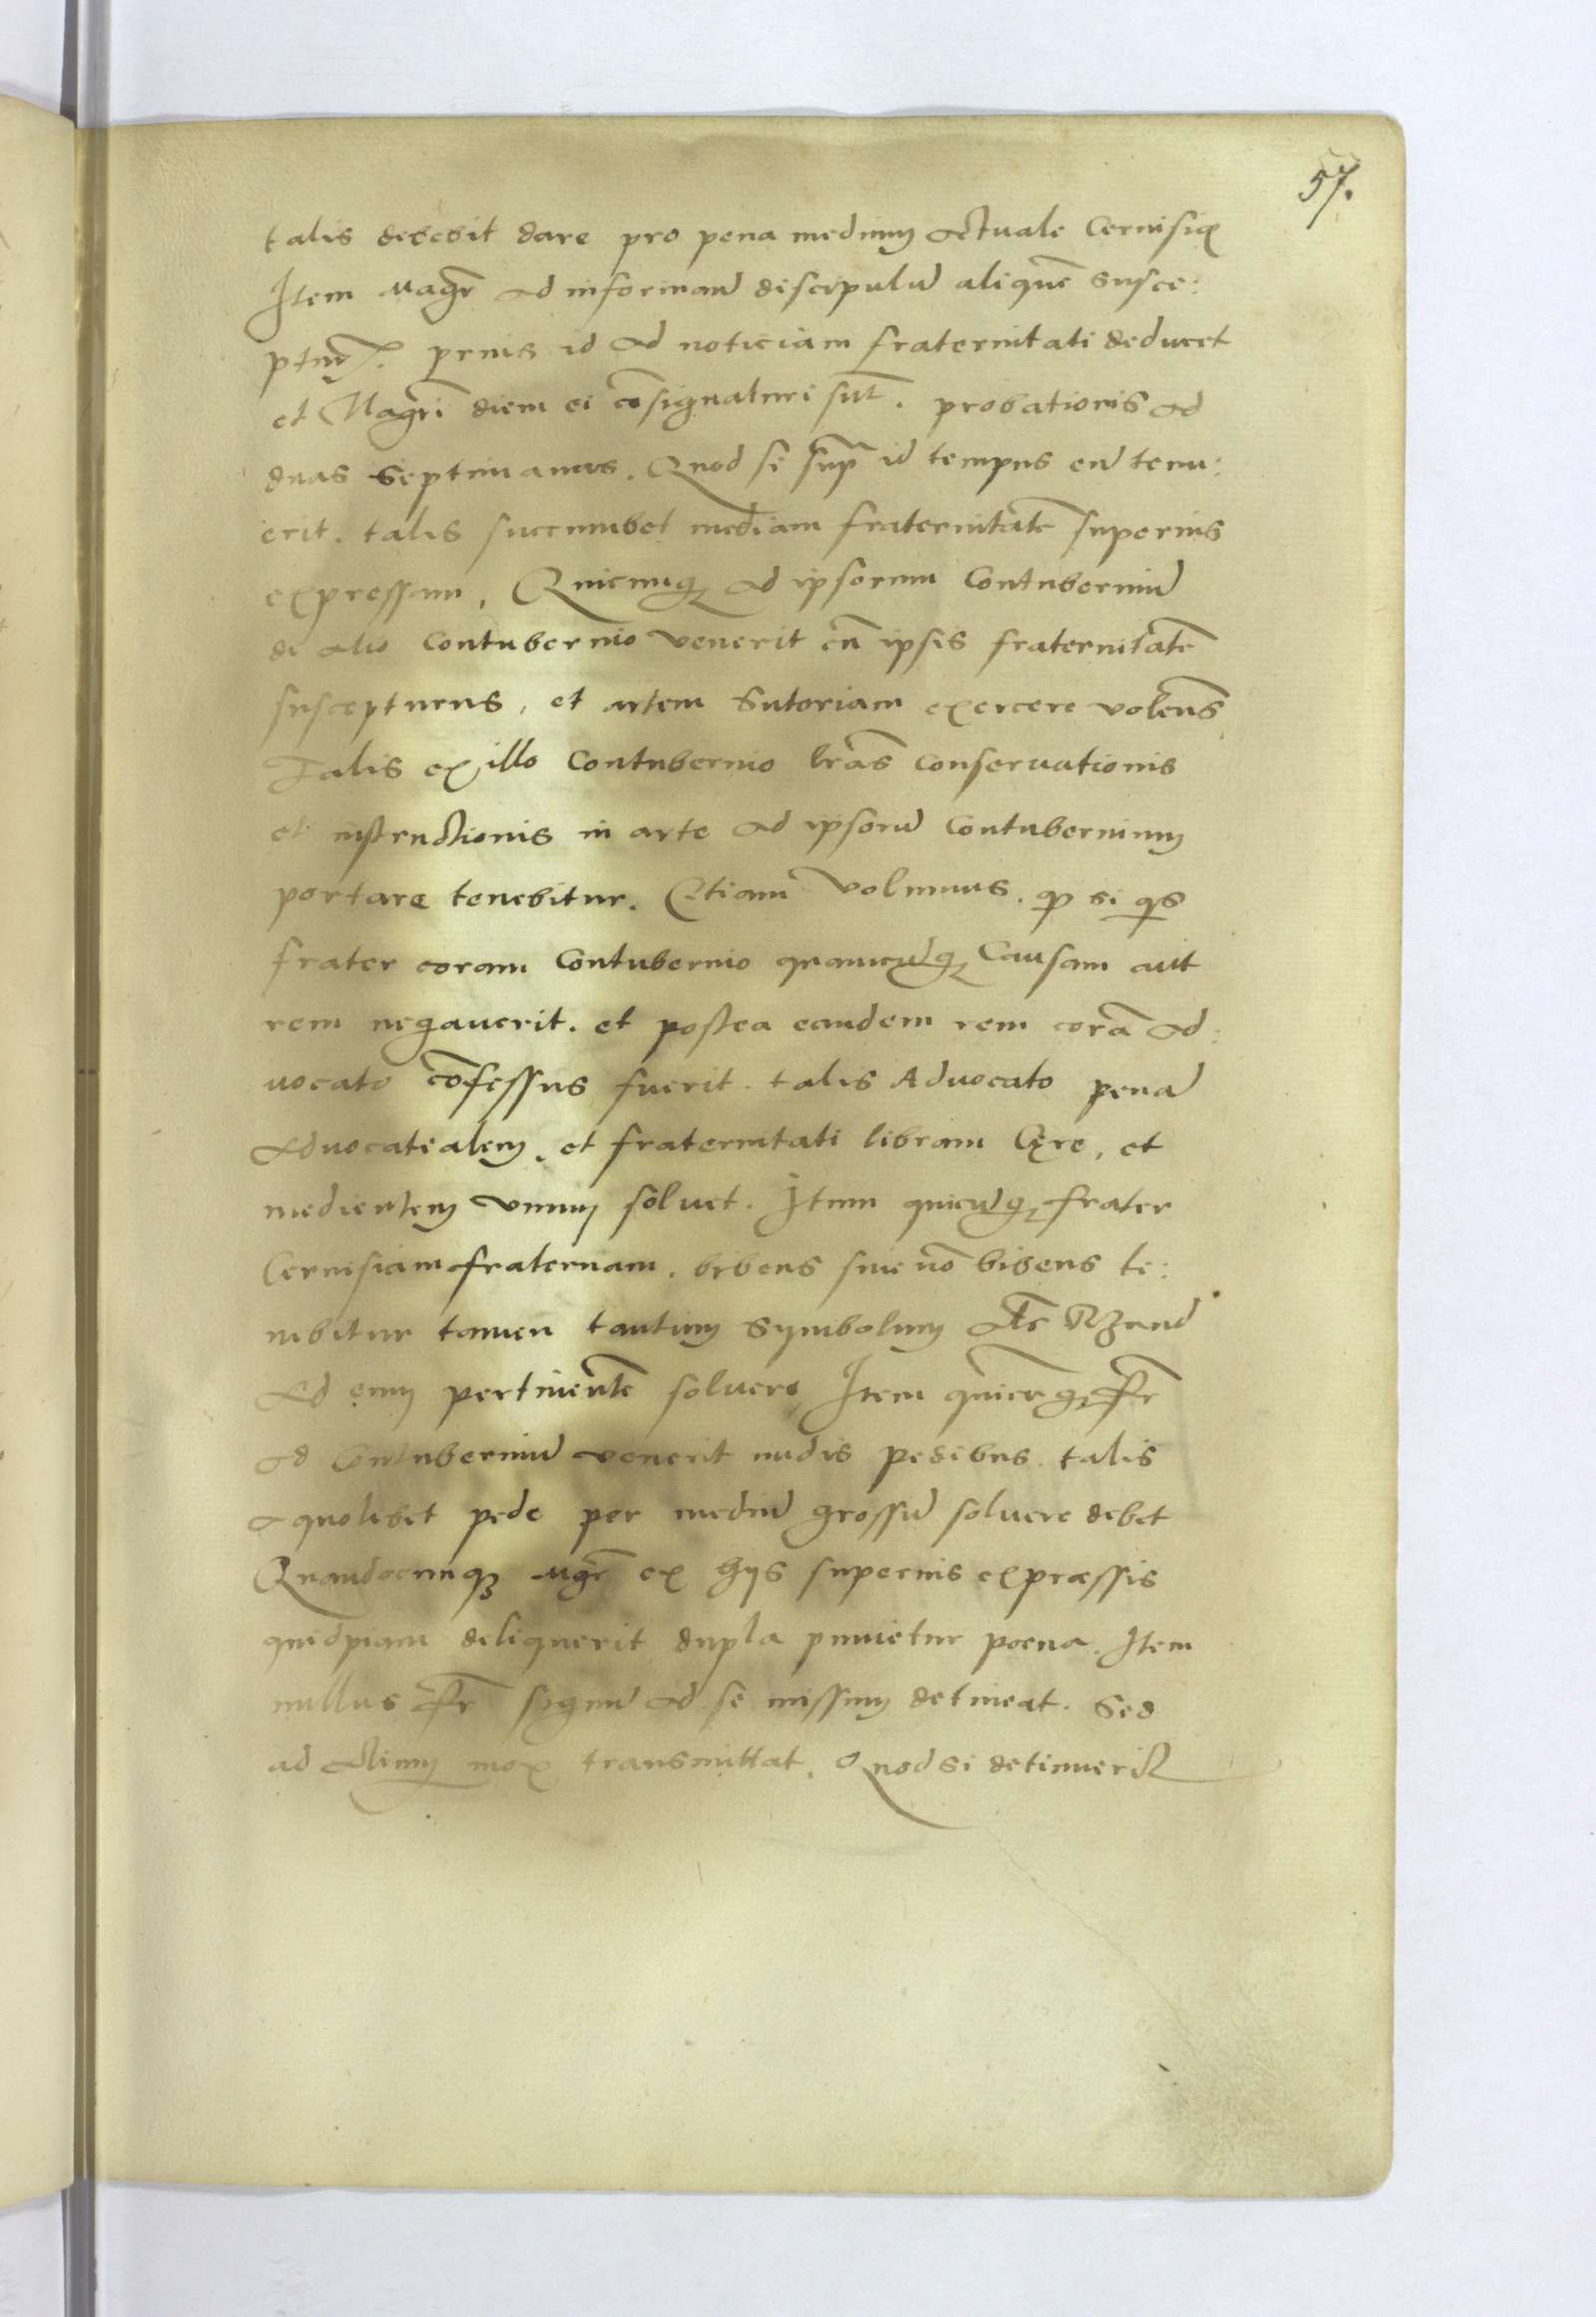 57.
talis debebit dare pro pena medium actuale Ceruisię
Item Magr̄ ad informand̄ discipulū aliquē susce:
prius id ad noticiam fraternitati deducet
et Magrī diem ei cōsignaturi sūt. probationis ad
duas Septimanas. Quod si sup̄ id tempus eū tenu:
erit. talis succumbet mediam fraternitatē superius
expressam. Quicunqꝫ ad ipsorum Contuberniū
de alio Contubernio venerit cū ipsis fraternitatē
suscepturus, et artem Sutoriam exercere volens̄
Talis ex illo Contubernio lrās conseruationis
et instructionis in arte ad ipsorū Contubernium
portare tenebitur. Etiam volumus. ꝙ si qs
frater coram Contubernio quamcūqꝫ Causam aut
rem negauerit. et postea eandem rem corā ad:
uocato cōfessus fuerit. talis Aduocato penā
Aduocatialem, et fraternitati libram Cęre, et
medientem vnum soluet. Itum quicūqꝫ frater
Ceruisiam fraternam. bibens siue nō bibens te:
nebitur tamen tantum Symbolum als Rzand
Ad eum pertinentē soluere, Item quicunqꝫ fr̄
ad Contuberniū venerit nudis pedibus. talis
a quolibet pede per mediū grossū soluere debet
Quandocunqꝫ Mgr̄ ex hijs superius expræssis
quidpiam deliquerit dupla punietur poena. Item
nullus fr̄ signū ad se missum detineat. Sed
ad alium mox transmittat. Quod si detinuerit